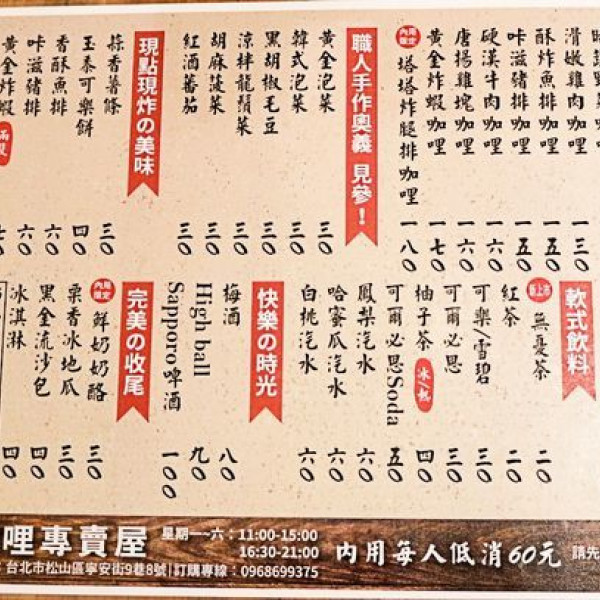 滑嫩雞肉咖哩 一三〇
酥炸魚排咖哩 一五〇
咔滋豬排咖哩 一五〇
硬漢牛肉咖哩 一六〇
唐揚雞塊咖哩 一六〇
黃金炸蝦咖哩 一七〇
內用限定 塔塔炸腿排咖哩 一八〇
職人手作奧義 見參！
黃金泡菜 三〇
韓式泡菜 三〇
黑胡椒毛豆 三〇
涼拌龍鬚菜 三〇
胡麻菠菜 三〇
紅酒蕃茄 三〇
現點現炸の美味
蒜香薯條 三〇
玉泰可樂餅 四〇
香酥魚排 六〇
咔滋豬排 六〇
黃金炸蝦
軟式飲料
新上市 無憂茶 二〇
紅茶 二〇
可樂/雪碧 三〇
可爾必思 三〇
柚子茶 冰/熱 四〇
可爾必思Soda 五〇
鳳梨汽水 六〇
哈蜜瓜汽水 六〇
白桃汽水 六〇
快樂の時光
梅酒 八〇
High ball 九〇
Sapporo啤酒 一〇〇
完美の收尾
內用限定 鮮奶奶酪 三〇
栗香冰地瓜 三〇
黑金流沙包 四〇
冰淇淋 四〇
哩專賣屋 星期一~六：11:00-15:00
16:30-21:00
內用每人低消60元 請先
：台北市松山區寧安街9巷8號|訂購專線：0968699375